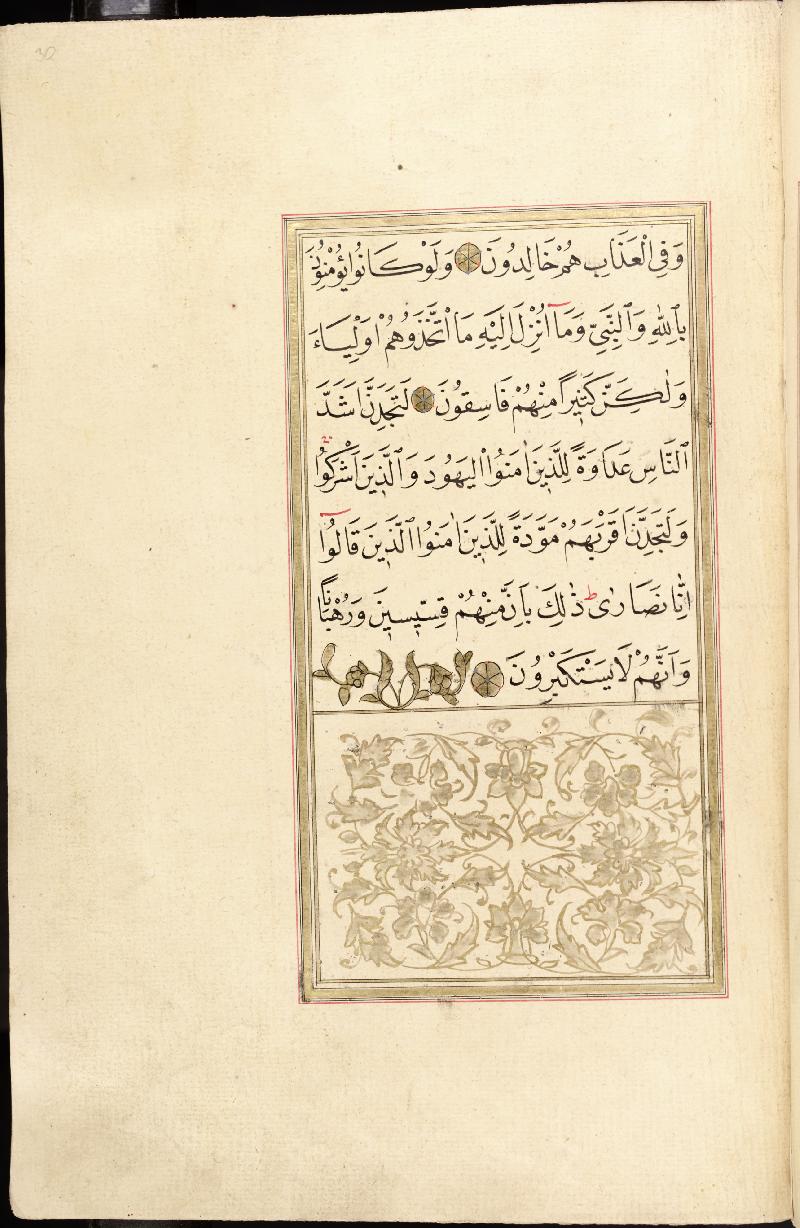 30
وَفِى الْعَذَابِ هُمْ خَالِدُونَ وَلَوْ كَانُوا يُؤْمِنُونَ
بِاللّٰهِ وَالنَّبِىِّ وَمَآ اُنْزِلَ اِلَيْهِ مَا اتَّخَذُوهُمْ اَوْلِيَاءَ
وَلٰكِنَّ كَثِيرًا مِنْهُمْ فَاسِقُونَ لَتَجِدَنَّ اَشَدَّ
النَّاسِ عَدَاوَةً لِلَّذِينَ اٰمَنُوا الْيَهُودَ وَالَّذِينَ اَشْرَكُوا
وَلَتَجِدَنَّ اَقْرَبَهُمْ مَوَدَّةً لِلَّذِينَ اٰمَنُوا الَّذِينَ قَالُوآ
اِنَّا نَصَارٰى ط ذٰلِكَ بِاَنَّ مِنْهُمْ قِسِّيسِينَ وَرُهْبَانًا
وَاَنَّهُمْ لَا يَسْتَكْبِرُونَ